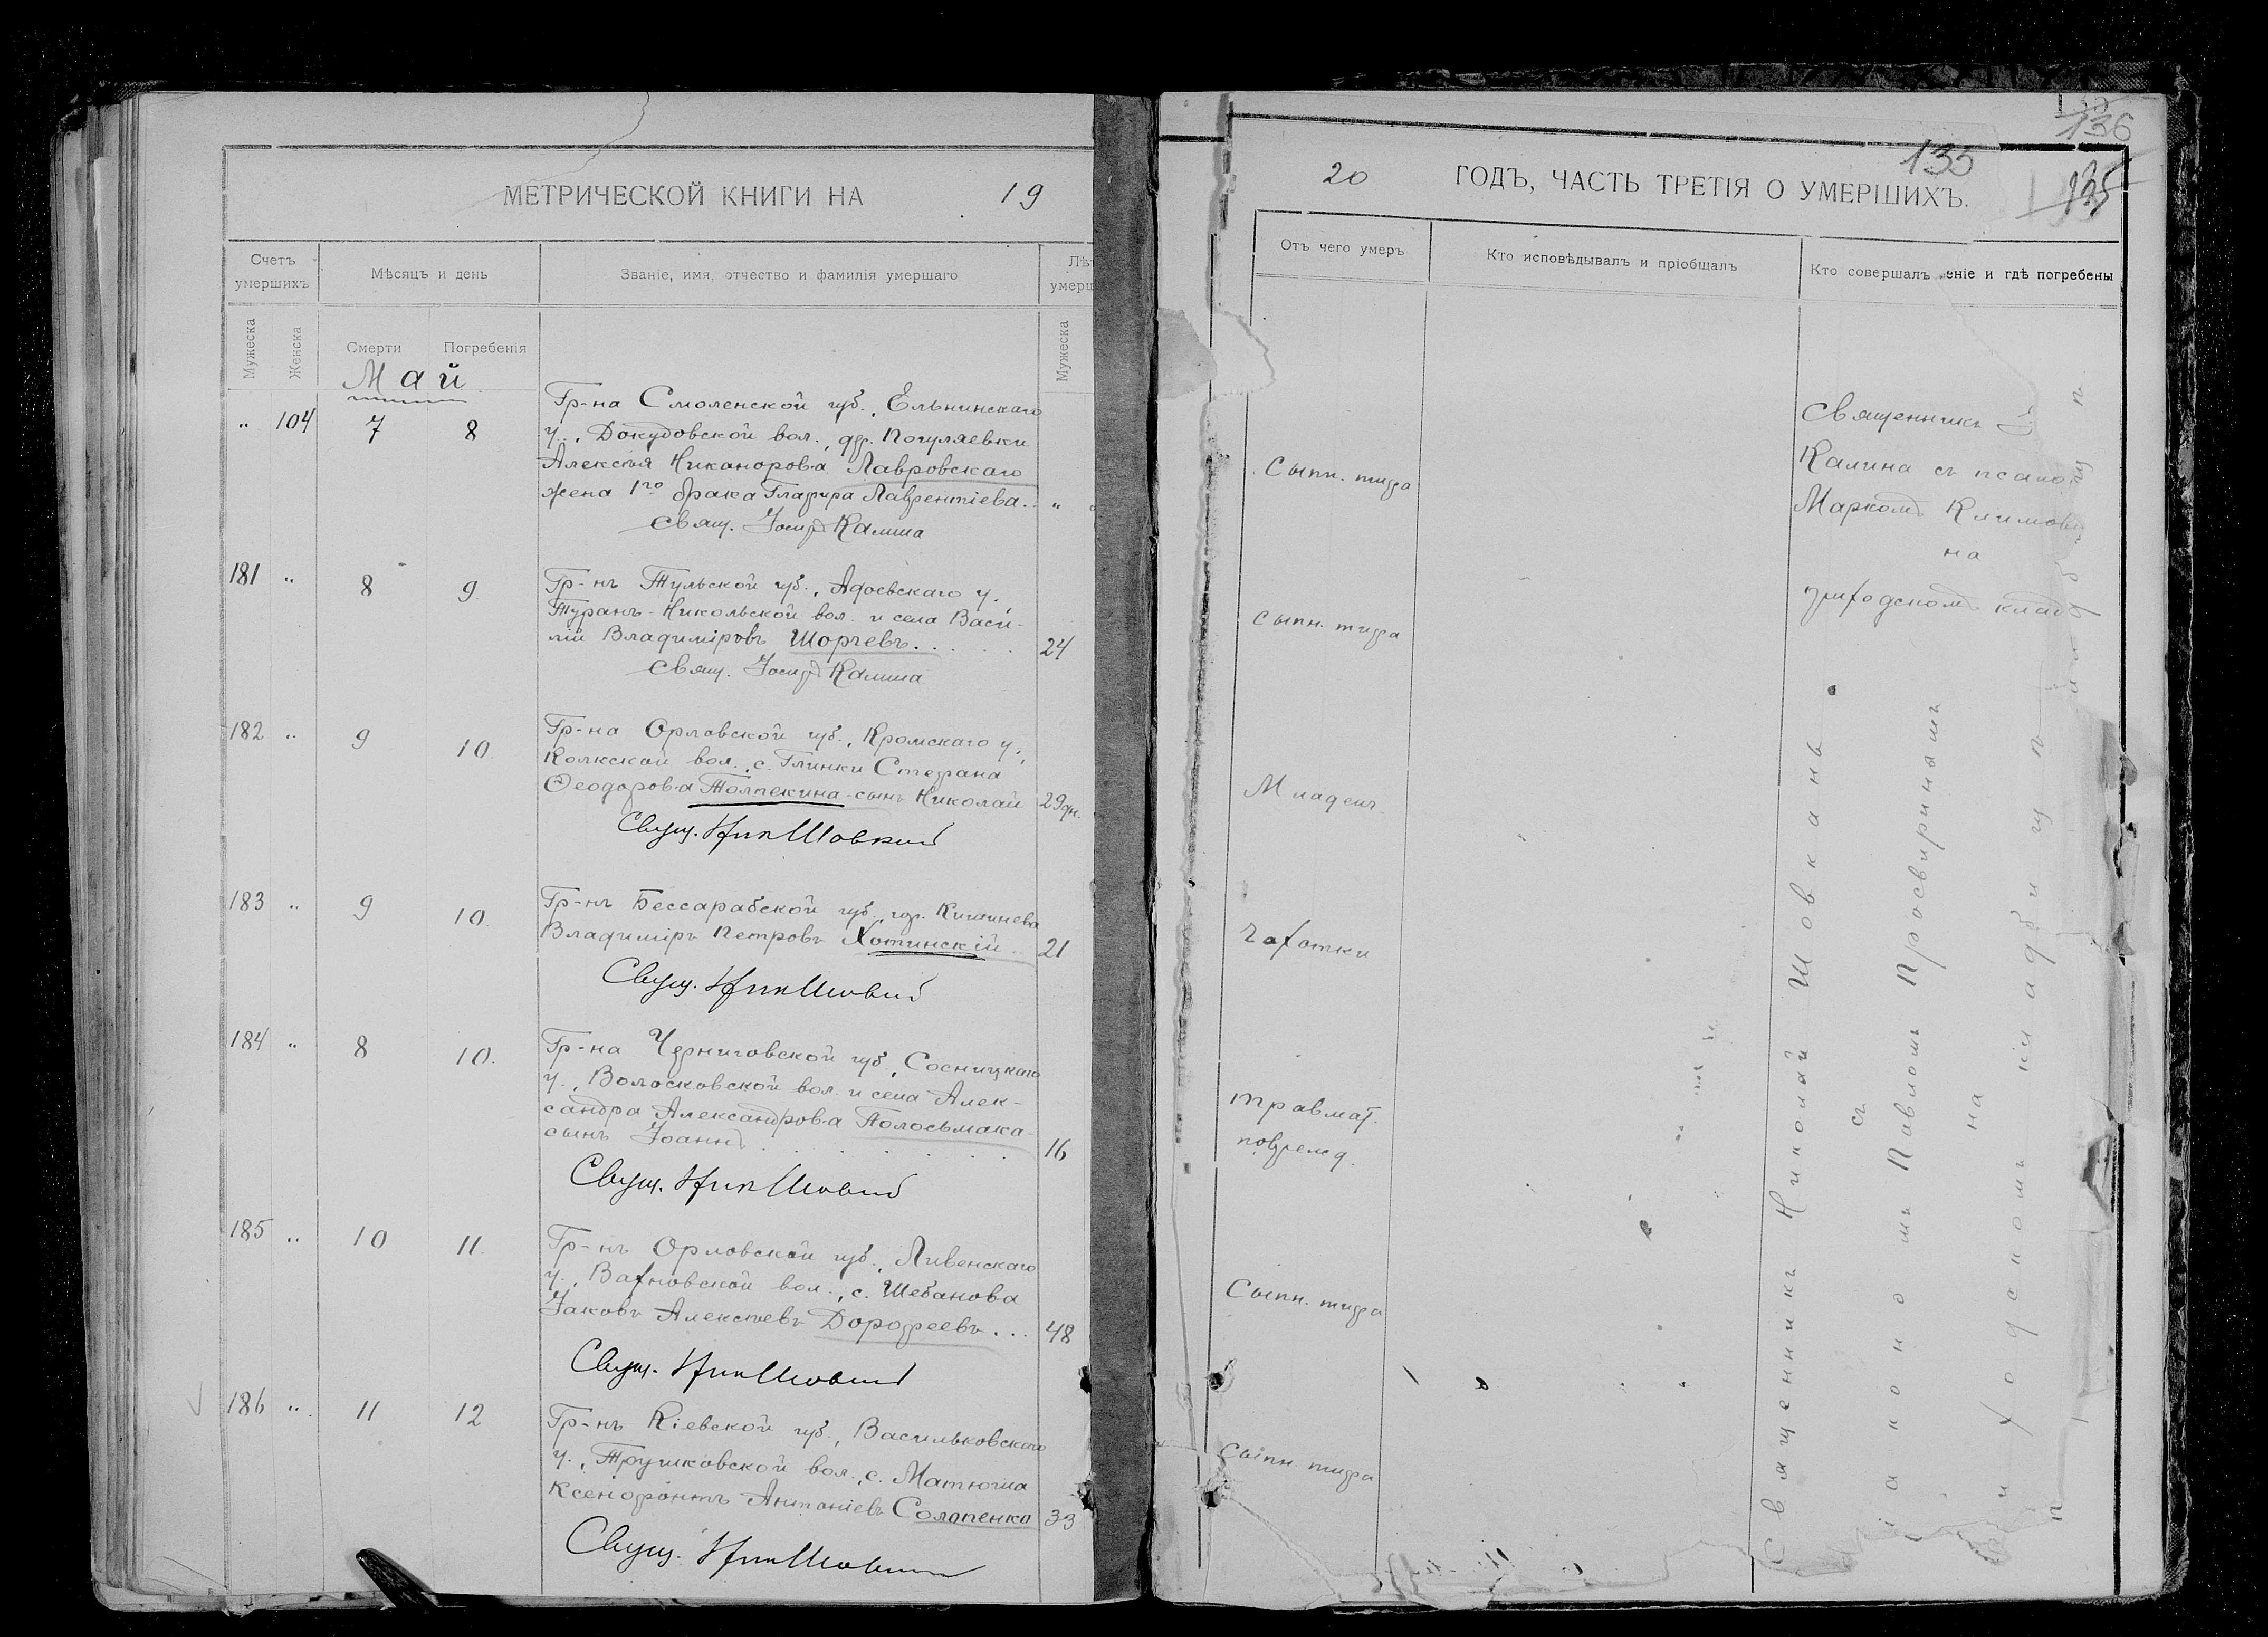 МЕТРИЧЕСКОЙ КНИГИ НА 19
Счетъ умершихъ
Мѣсяцъ и день
Званіе, имя, отчество и фамилія умершаго
Мужеска
Женска
Смерти
Погребенія
Мужеска
Май
" 104 7 8
Гр-на Смоленской губ., Ельнинскаго
у., Докудовской вол., дер. Погуляевки
Алексѣя Никанорова Лавровскаго
жена 1го брака Глафира Лаврентіева.. "
Свящ. Іосиф Калина
181 " 8 9.
Гр-нъ Тульской губ., Адоевскаго у.,
Туранъ-Никольской вол. и села Васи-
лій Владиміровъ Шорчевъ..... 24
Свящ. Іосиф Калина
182 " 9 10
Гр-на Орловской губ., Кромскаго у.,
Колкской вол., с. Глинки Стефана
Ѳеодорова Толпекина - сынъ Николай 29 дн.
Свящ. Ник Шовкан
183 " 9 10.
Гр-нъ Бессарабской губ., гор. Кишинева
Владиміръ Петровъ Хотинскій 21
Свящ. Ник Шовкан
184 " 8 10.
Гр-на Черниговской губ., Сосницкаго
у., Волосковской вол. и села Алек-
сандра Александрова Полосьмака -
сынъ Іоаннъ....... 16
Свящ. Ник Шовкан
185 " 10 11.
Гр-нъ Орловской губ., Ливенскаго
у., Вахновской вол., с. Шебанова
Іаковъ Алексѣевъ Дорофеевъ... 48
Свящ. Ник Шовкан
186 " 11 12
Гр-нъ Кіевской губ., Васильковскаго
у., Трушковской вол., с. Матюша
Ксенофонтъ Антоніевъ Солопенко 33
Свящ. Ник Шовкан
136
135
20 ГОДЪ, ЧАСТЬ ТРЕТІЯ О УМЕРШИХЪ.
Отъ чего умеръ
Кто исповѣдывалъ и пріобщалъ
Кто совершалъ еніе и гдѣ погребены
Сыпн. тифа
Священникъ
Калина съ псало
Маркомъ Климов
на
приходскомъ кладб
Сыпн. тифа
Младен.
Чахотки
Травмат.
поврежд.
Сыпн. тифа
Сыпн. тифа
Священникъ Николай Шовкань
съ
іакономъ Павломъ Просвиринымъ
на
приходскомъ кладбищѣ